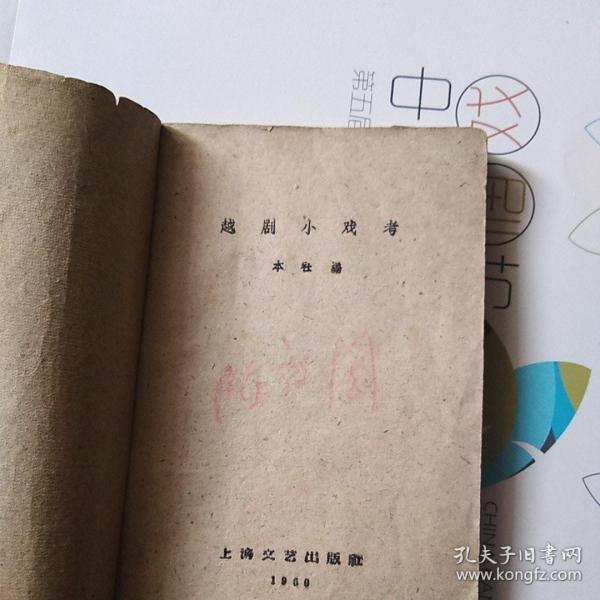 第五届
中
双
剧
越剧小戏考
本社编
上海文艺出版社
1960
CHIN
孔夫子旧书网
www.kongfz.com